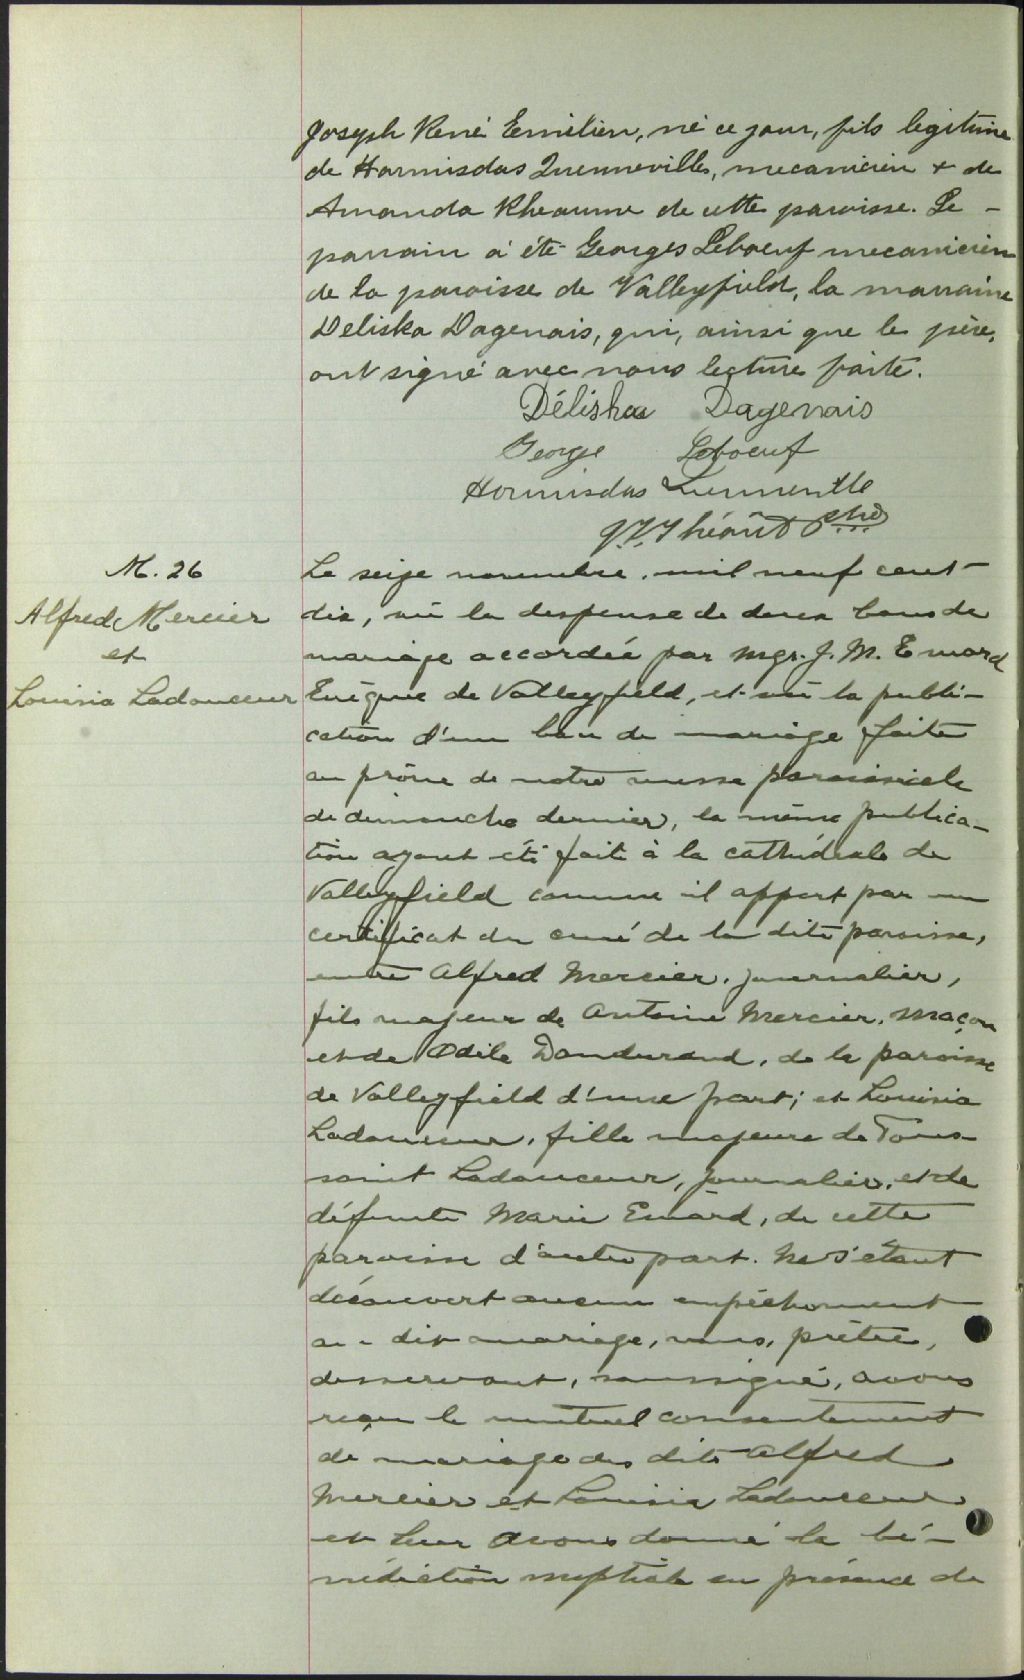 Joseph René Emilien, né ce jour, fils legitime
de Hormisdas Quenneville, mecanicien + de
Amanda Rheaume de cette paroisse. Le -
parrain a été Georges Leboeuf mecanicien
de la paroisse de Valleyfield, la marraine
Deliska Dagenais, qui, ainsi que le père,
ont signé avec nous lecture faite.
Délisha Dagenais
George Leboeuf
Hormisdas Quenneville
Théorêt ptre
M. 26
Alfred Mercier
et
Louisia Ladouceur
Le seize novembre, mil neuf cent
dix, vu la dispense de deux bans de
mariage accordée par Mgr. J. M. Emard
Evêque de Valleyfield, et vu la publi-
cation d'un ban de mariage faite
au prône de notre messe paroissiale
de dimanche dernier, la même publica-
tion ayant été faite à la cathédrale de
Valleyfield comme il appert par un
certificat du curé de la dite paroisse,
entre Alfred Mercier, journalier,
fils majeur de Antoine Mercier, maçon
et de Odile Dandurand, de la paroisse
de Valleyfield d'une part; et Louisia
Ladouceur, fille majeure de Tous-
saint Ladouceur, journalier, et de
défunte Marie Emard, de cette
paroisse d'autre part. Ne s'étant
découvert aucun empêchement
au dit mariage, nous, prêtre,
desservant, soussigné, avons
reçu le mutuel consentement
de mariage des dits Alfred
Mercier et Louisia Ladouceur
et leur avons donné la bé-
nédiction nuptiale en présence de